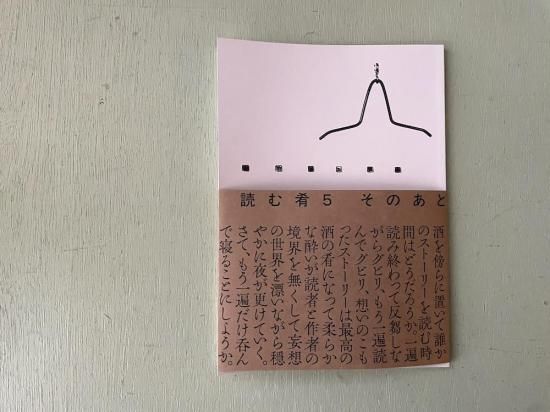 読む肴5 そのあと
酒を傍らに置いて誰か
のストーリーを読む時
間はどうだろうか。一遍
読み終わって反芻しな
がらグビリ、もう一遍読
んでグビリ、想いのこも
ったストーリーは最高の
酒の肴になって柔らか
な酔いが読者と作者の
境界を無くして妄想
の世界を漂いながら穏
やかに夜が更けていく。
さて、もう一遍だけ呑ん
で寝ることにしようか。